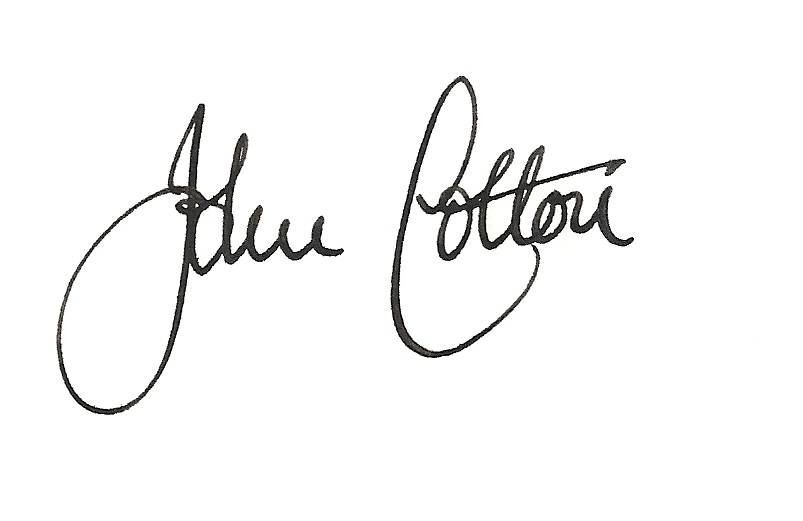 John Cotton